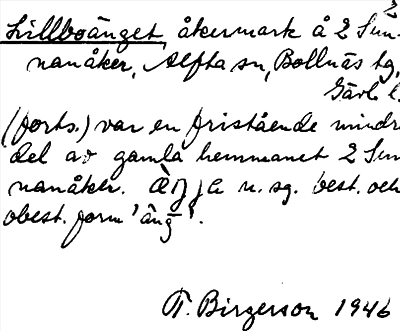 2
Lillboänget, åkermark å 2 Sun-
nanåker, Alfta sn, Bollnäs tg,
Gävl. l.
(forts.) var en fristående mindre
del av gamla hemmanet 2 Sun
nanåker. n. sg. best. och
obest. form 'äng'.
T. Birgerson 1946